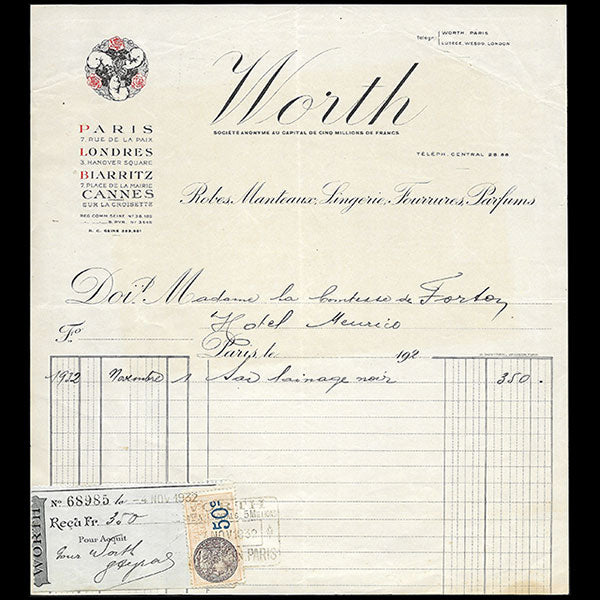 Télégr. WORTH PARIS
LUTECE, WESDO, LONDON
Worth
SOCIÉTÉ ANONYME AU CAPITAL DE CINQ MILLIONS DE FRANCS
TÉLÉPH. CENTRAL 28.66
PARIS
7. RUE DE LA PAIX
LONDRES
3. HANOVER SQUARE
BIARRITZ
7. PLACE DE LA MAIRIE
CANNES
SUR LA CROISETTE
REG. COMM. SEINE N° 36.185
Robes, Manteaux, Lingerie, Fourrures, Parfums
Doit Madame la Comtesse de
Hotel Meurice
F°
Paris, le 192
1932 Novembre 1 Sac lainage noir 350.
WORTH
N° 68985 le -4 NOV 1932
Reçu Fr. 350
Pour Acquit
pour Worth
50c
NOV 1932
PARIS